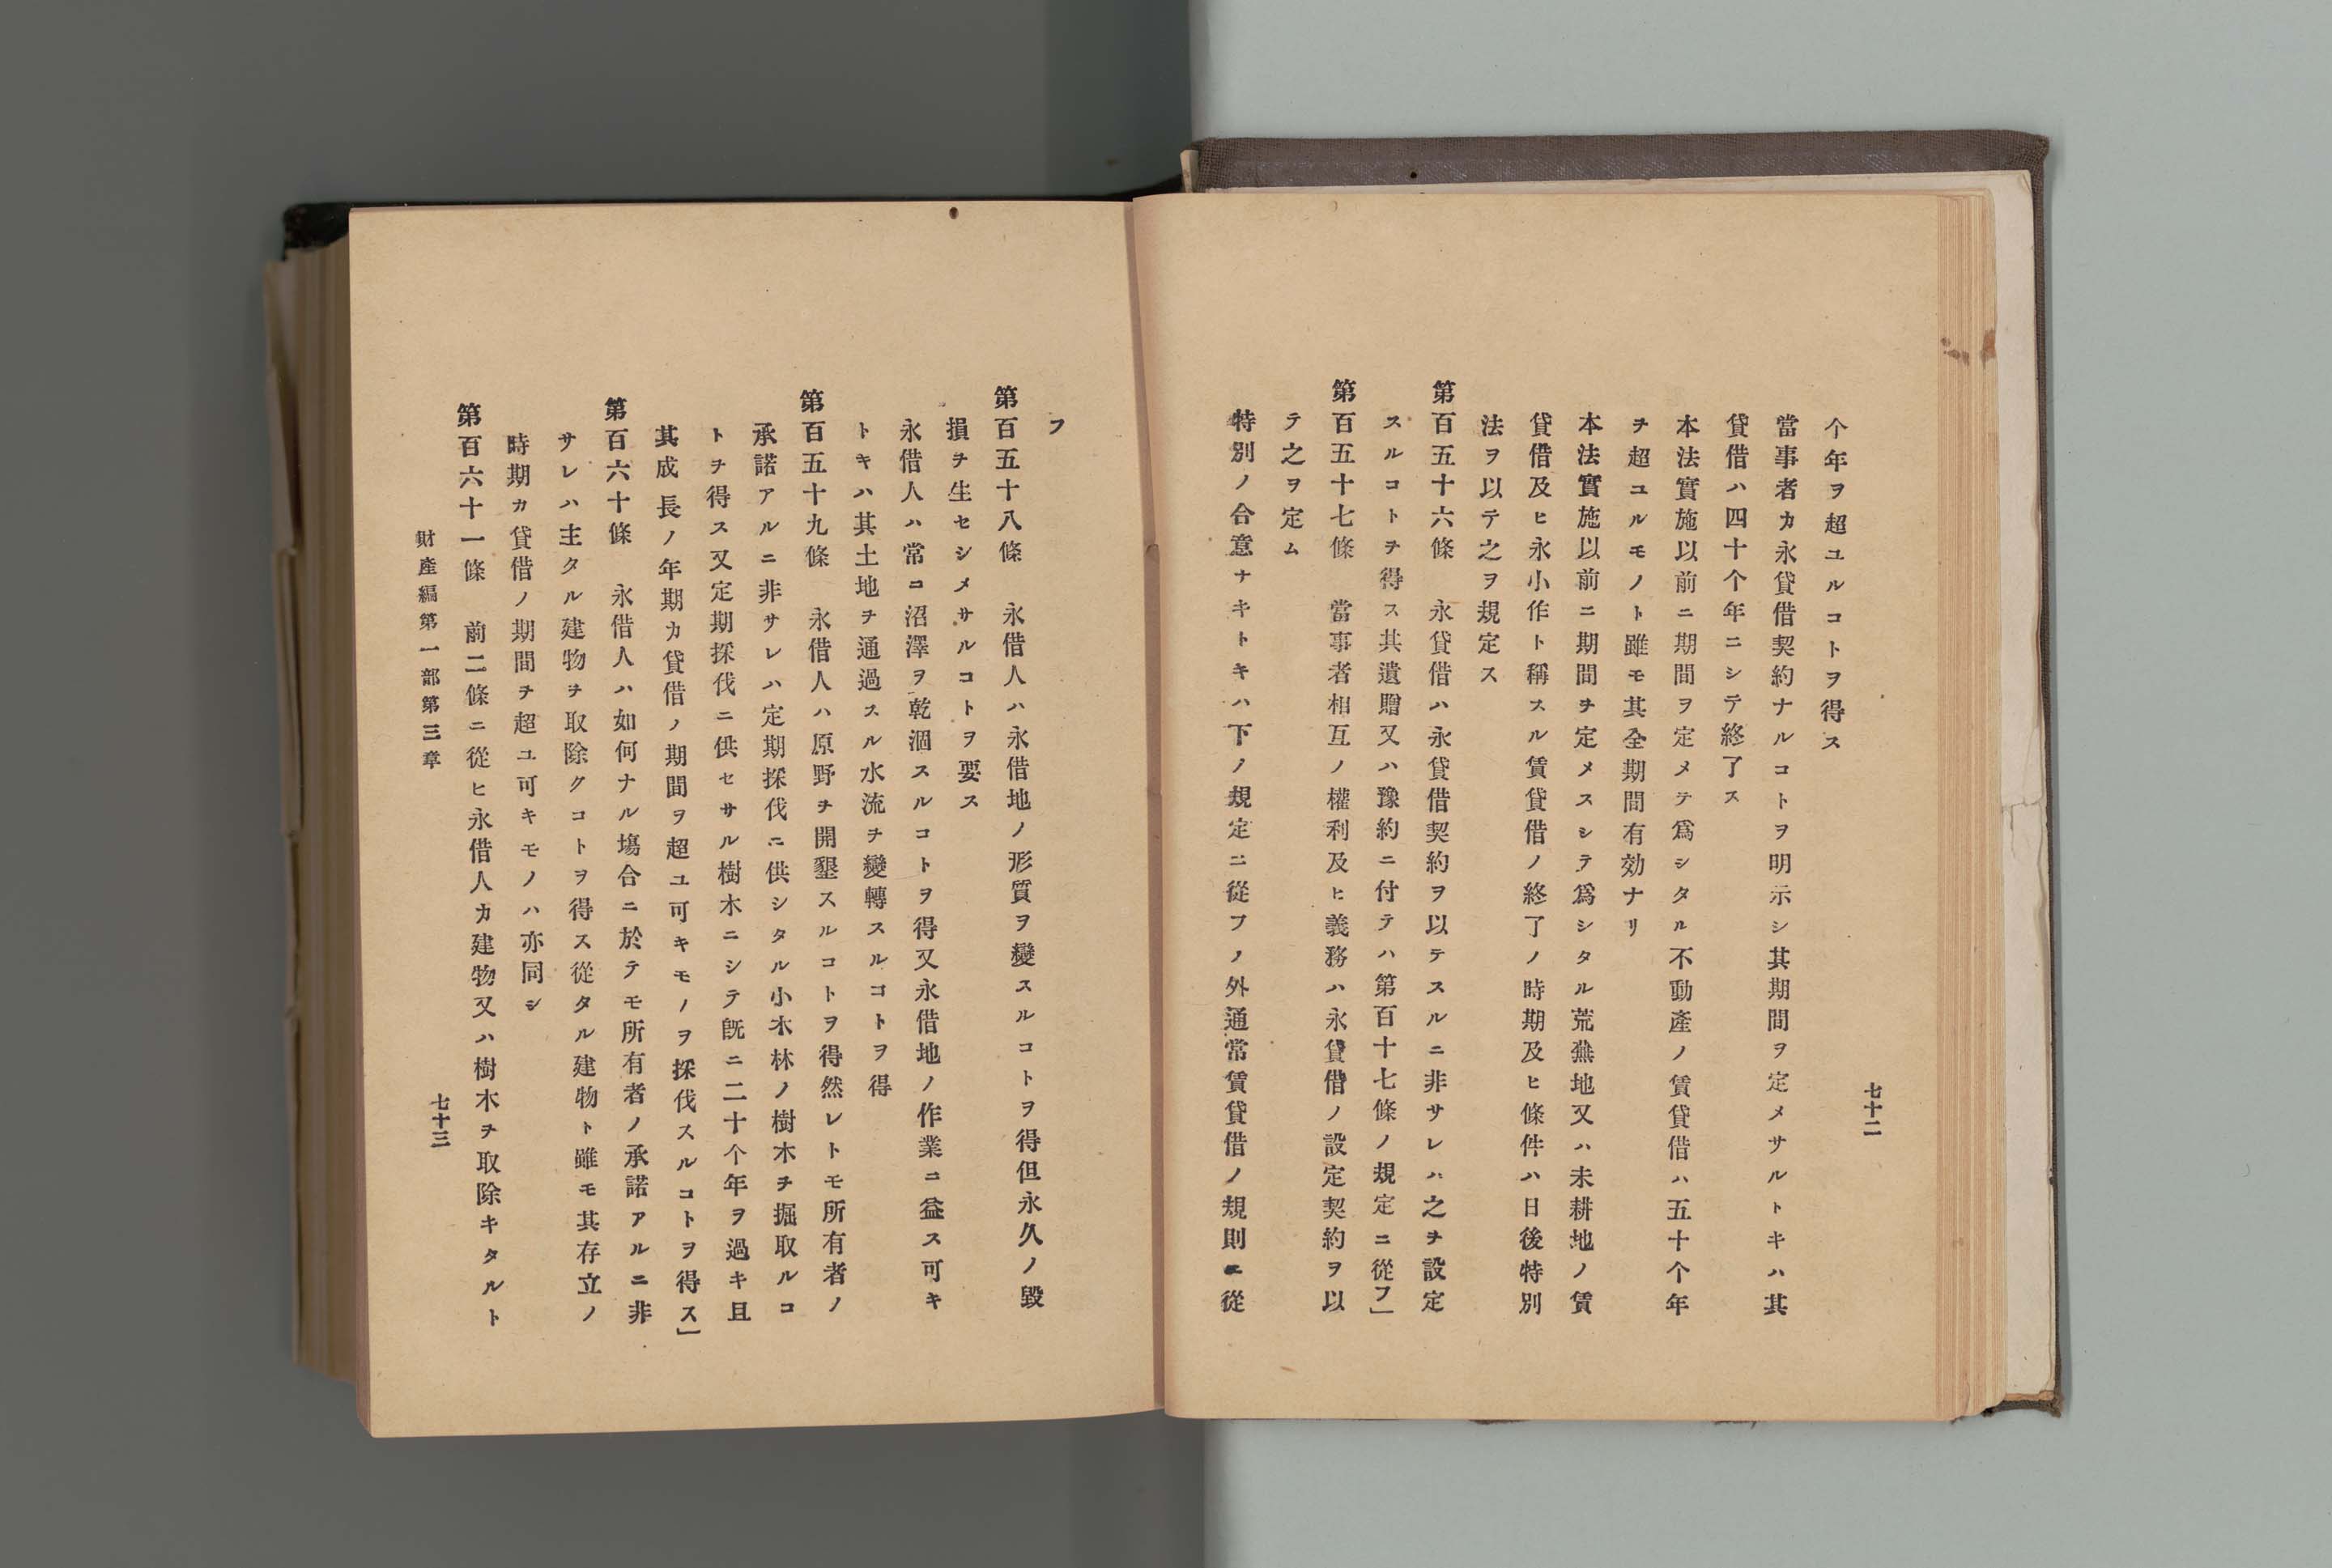 七十二
个年ヲ超ユルコトヲ得ス
當事者カ永貸借契約ナルコトヲ明示シ其期間ヲ定メサルトキハ其
貸借ハ四十个年ニシテ終了ス
本法實施以前ニ期間ヲ定メテ爲シタル不動產ノ賃貸借ハ五十个年
ヲ超ユルモノト雖モ其全期間有効ナリ
本法實施以前ニ期間ヲ定メスシテ爲シタル荒蕪地又ハ未耕地ノ賃
貸借及ヒ永小作ト稱スル賃貸借ノ終了ノ時期及ヒ條件ハ日後特別
法ヲ以テ之ヲ規定ス
第百五十六條　永貸借ハ永貸借契約ヲ以テスルニ非サレハ之ヲ設定
スルコトヲ得ス其遺贈又ハ豫約ニ付テハ第百十七條ノ規定ニ從フ」
第百五十七條　當事者相互ノ權利及ヒ義務ハ永貸借ノ設定契約ヲ以
テ之ヲ定ム
特別ノ合意ナキトキハ下ノ規定ニ從フノ外通常賃貸借ノ規則ニ從
フ
第百五十八條　永借人ハ永借地ノ形質ヲ變スルコトヲ得但永久ノ毀
損ヲ生セシメサルコトヲ要ス
永借人ハ常ニ沼澤ヲ乾涸スルコトヲ得又永借地ノ作業ニ益ス可キ
トキハ其土地ヲ通過スル水流ヲ變轉スルコトヲ得
第百五十九條　永借人ハ原野ヲ開墾スルコトヲ得然レトモ所有者ノ
承諾アルニ非サレハ定期採伐ニ供シタル小木林ノ樹木ヲ掘取ルコ
トヲ得ス又定期採伐ニ供セサル樹木ニシテ旣ニ二十个年ヲ過キ且
其成長ノ年期カ貸借ノ期間ヲ超ユ可キモノヲ採伐スルコトヲ得ス」
第百六十條　永借人ハ如何ナル塲合ニ於テモ所有者ノ承諾アルニ非
サレハ主タル建物ヲ取除クコトヲ得ス從タル建物ト雖モ其存立ノ
時期カ貸借ノ期間ヲ超ユ可キモノハ亦同シ
第百六十一條　前二條ニ從ヒ永借人カ建物又ハ樹木ヲ取除キタルト
財產編第一部第三章
七十三